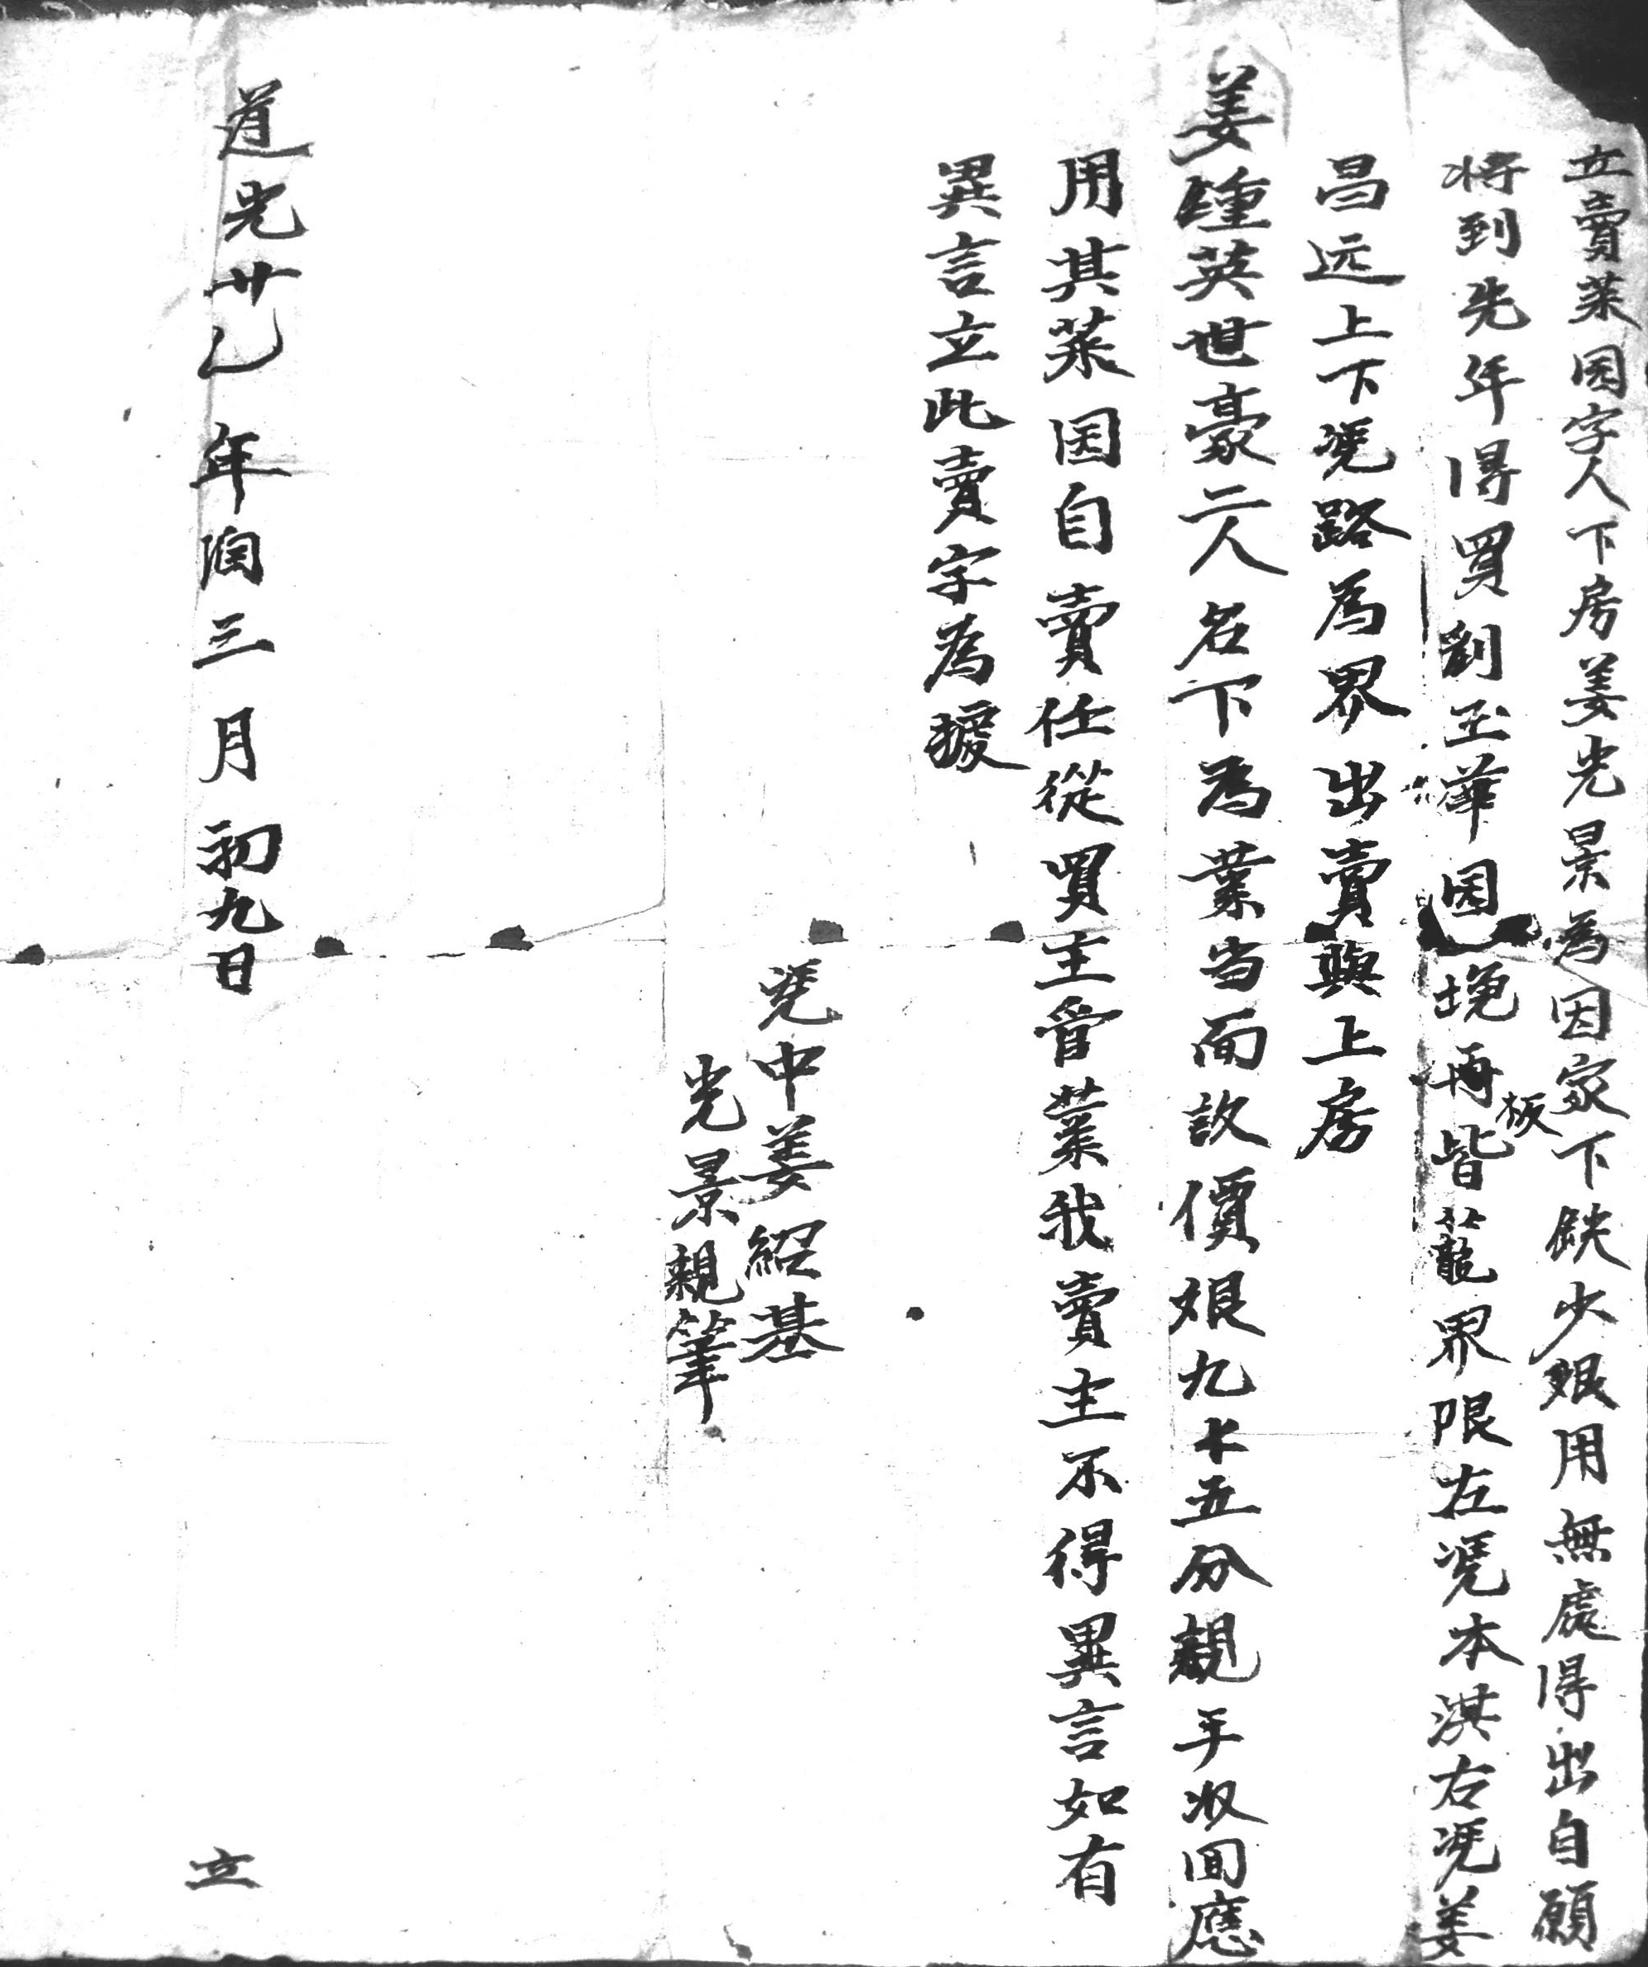 立賣菜园字人下房姜光景為因家下缺少銀用無處得出自願
将到先年得買劉玉華园一塊再板皆蘢界限左凴本淇右凴姜
昌远上下凴路為界出賣與上房
姜鍾英世豪二人名下為業当面議價銀九十五分親手收回應
用其菜园自賣任從買主管業我賣主不得異言如有
異言立此賣字為據
凴中姜紹基
光景親筆
道光廿乙年潤三月初九日
立